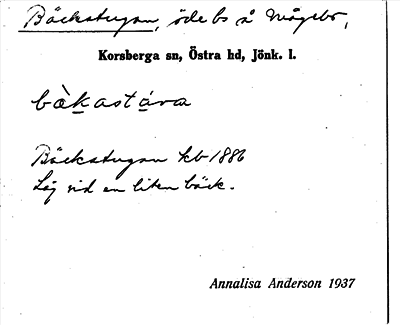 Bäckstugan, öde bs å Mågebo,
Korsberga sn, Östra hd, Jönk. l.
bàkastáva
Bäckstugan kb 1886
Låg vid en liten bäck.
Annalisa Anderson 1937